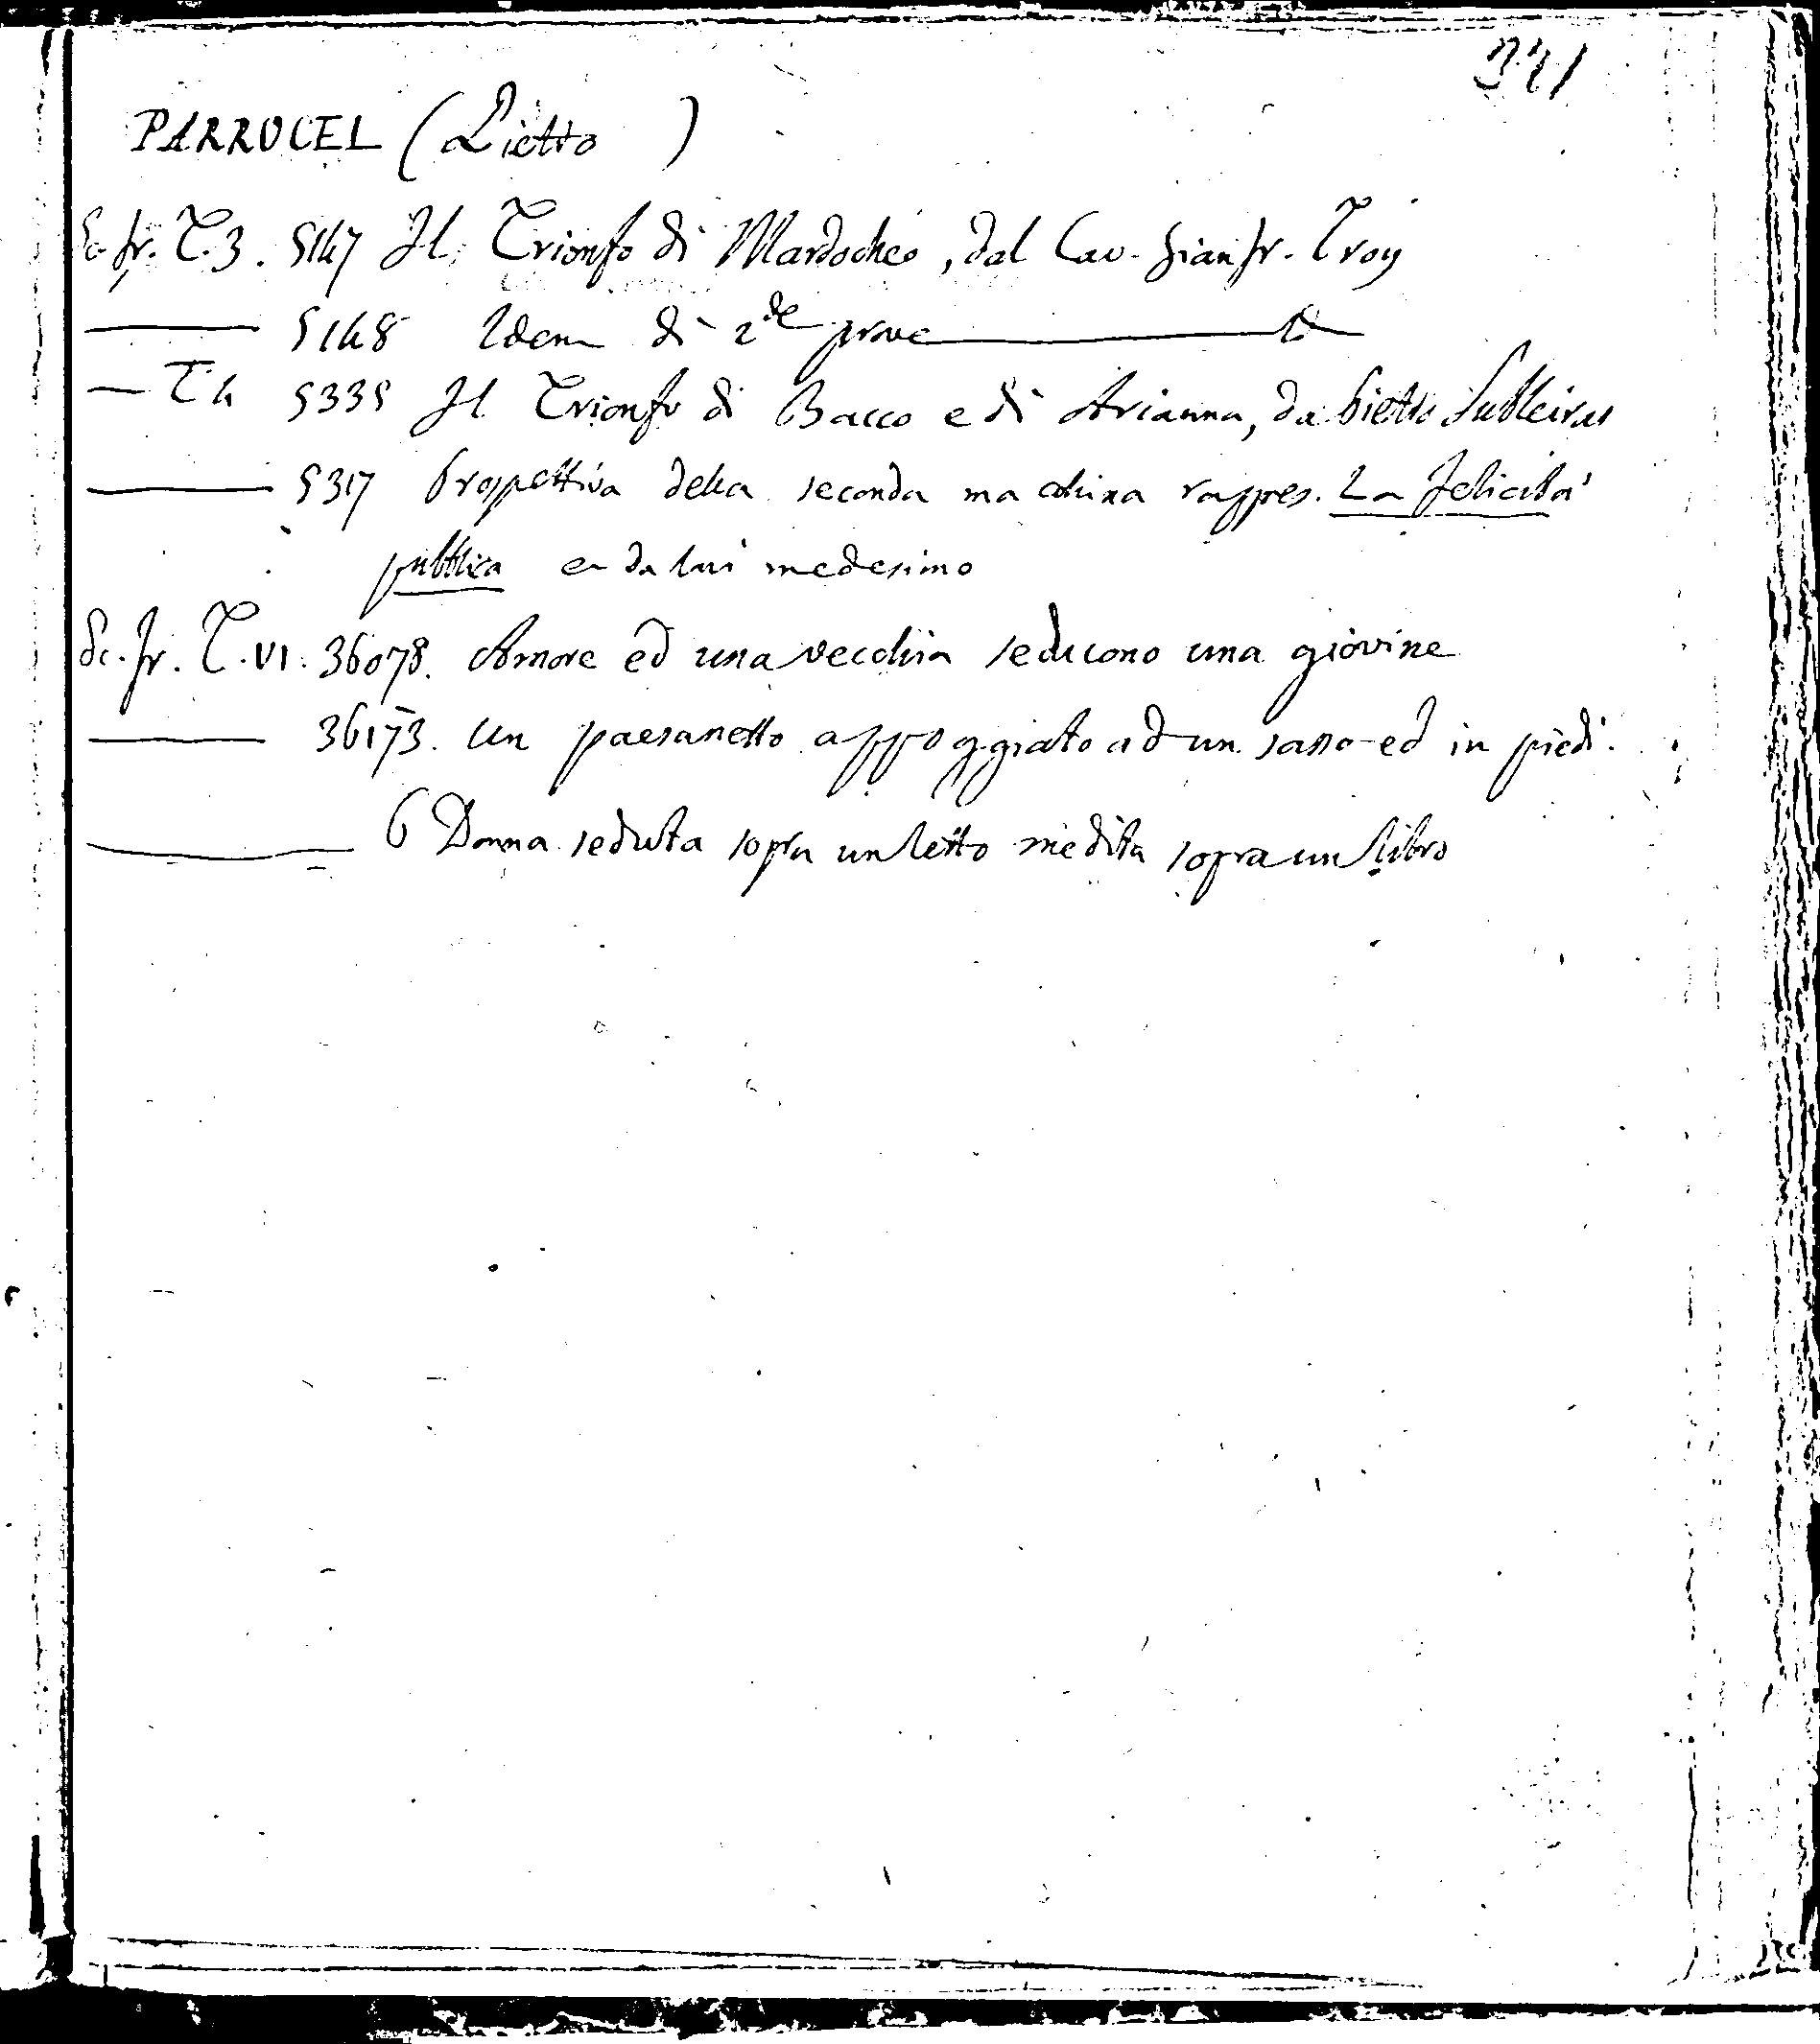 341
PARROCEL (Pietro )
Sc. fr. T. 3. 5147 Il Trionfo di Mardocheo, dal Cav. Gianfr. Troy
——— 5148 Idem di 2de prove ———
— T. 4 5335 Il Trionfo di Bacco e di Arianna, da Pietro Subleiras
——— 5317 Prospettiva della seconda macchina rappres. La Felicità
pubblica e da lui medesimo
Sc. fr. T. VI. 36078. Amore ed una vecchia seducono una giovine
——— 36173. Un paesanetto appoggiato ad un sasso ed in piedi.
——— 6 Donna seduta sopra un letto medita sopra un libro